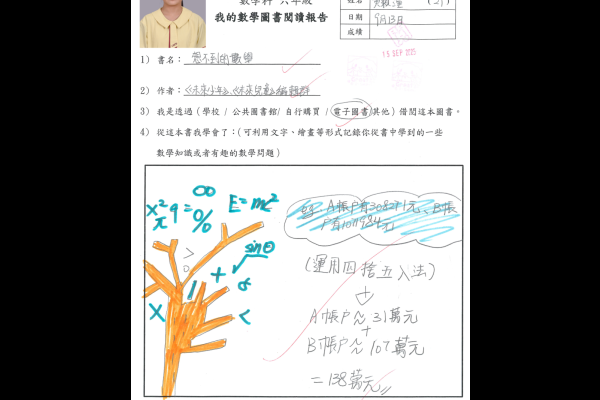 數學科 六年級
我的數學圖書閱讀報告
姓名
日期 9月13日
成績
15 SEP 2025
1) 書名：意不到的數學
2) 作者：《未來少年》、《未來兒童》編輯群
3) 我是透過（學校 / 公共圖書館/ 自行購買 / 電子圖書/其他）借閱這本圖書。
4) 從這本書我學會了：（可利用文字、繪畫等形式記錄你從書中學到的一些
數學知識或者有趣的數學問題）
∞
x² 9 = % E=mc²
π
sinθ
>
+
α
X
<
eg. A帳戶有308271元、B帳
戶有1071984元
(運用四捨五入法)
A帳戶≈31萬元
+
B帳戶≈107萬元
=138萬元